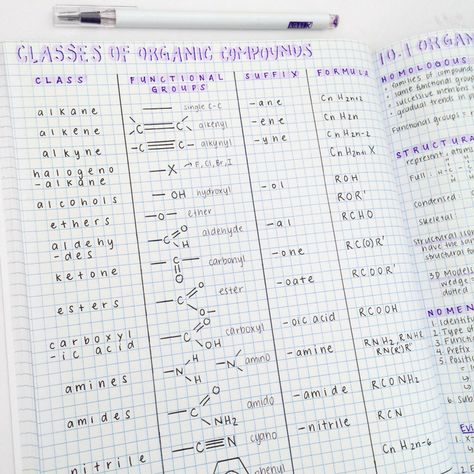 CLASSES OF ORGANIC COMPOUNDS
CLASS FUNCTIONAL GROUPS SUFFIX FORMULA
alkane single C-C -ane CnH2n+2
alkene C=C alkenyl -ene CnH2n
alkyne -C≡C- alkynyl -yne CnH2n-2
halogeno -alkane -X → F, Cl, Br, I CnH2n+1X
alcohols -OH hydroxyl -ol ROH
ethers -O- ether ROR'
aldehy -des -C O H aldehyde -al RCHO
ketone C O carbonyl -one RC(O)R'
esters -C O O- ester -oate RCOOR'
carboxyl -ic acid -C O OH carboxyl -oic acid RCOOH
amines -N H H N amino -amine RNH2, RNHR RN(R)R'
amides -C O NH2 amido -amide RCONH2
nitrile -C≡N cyano -nitrile RCN
phenyl CnH2n-6
10.1 ORGAN
HOMOLOGOUS
families of compounds
same functional group
successive members
gradual trends in p
Functional groups =
STRUCTURA
represent atoms
Full : H-C
condensed
skeletal
structural
have the sa
structural
3D Model
wedge
dotted
NOMEN
1. Identify
2. Type
3. Function
4. Prefix
5. Position
6. Sub